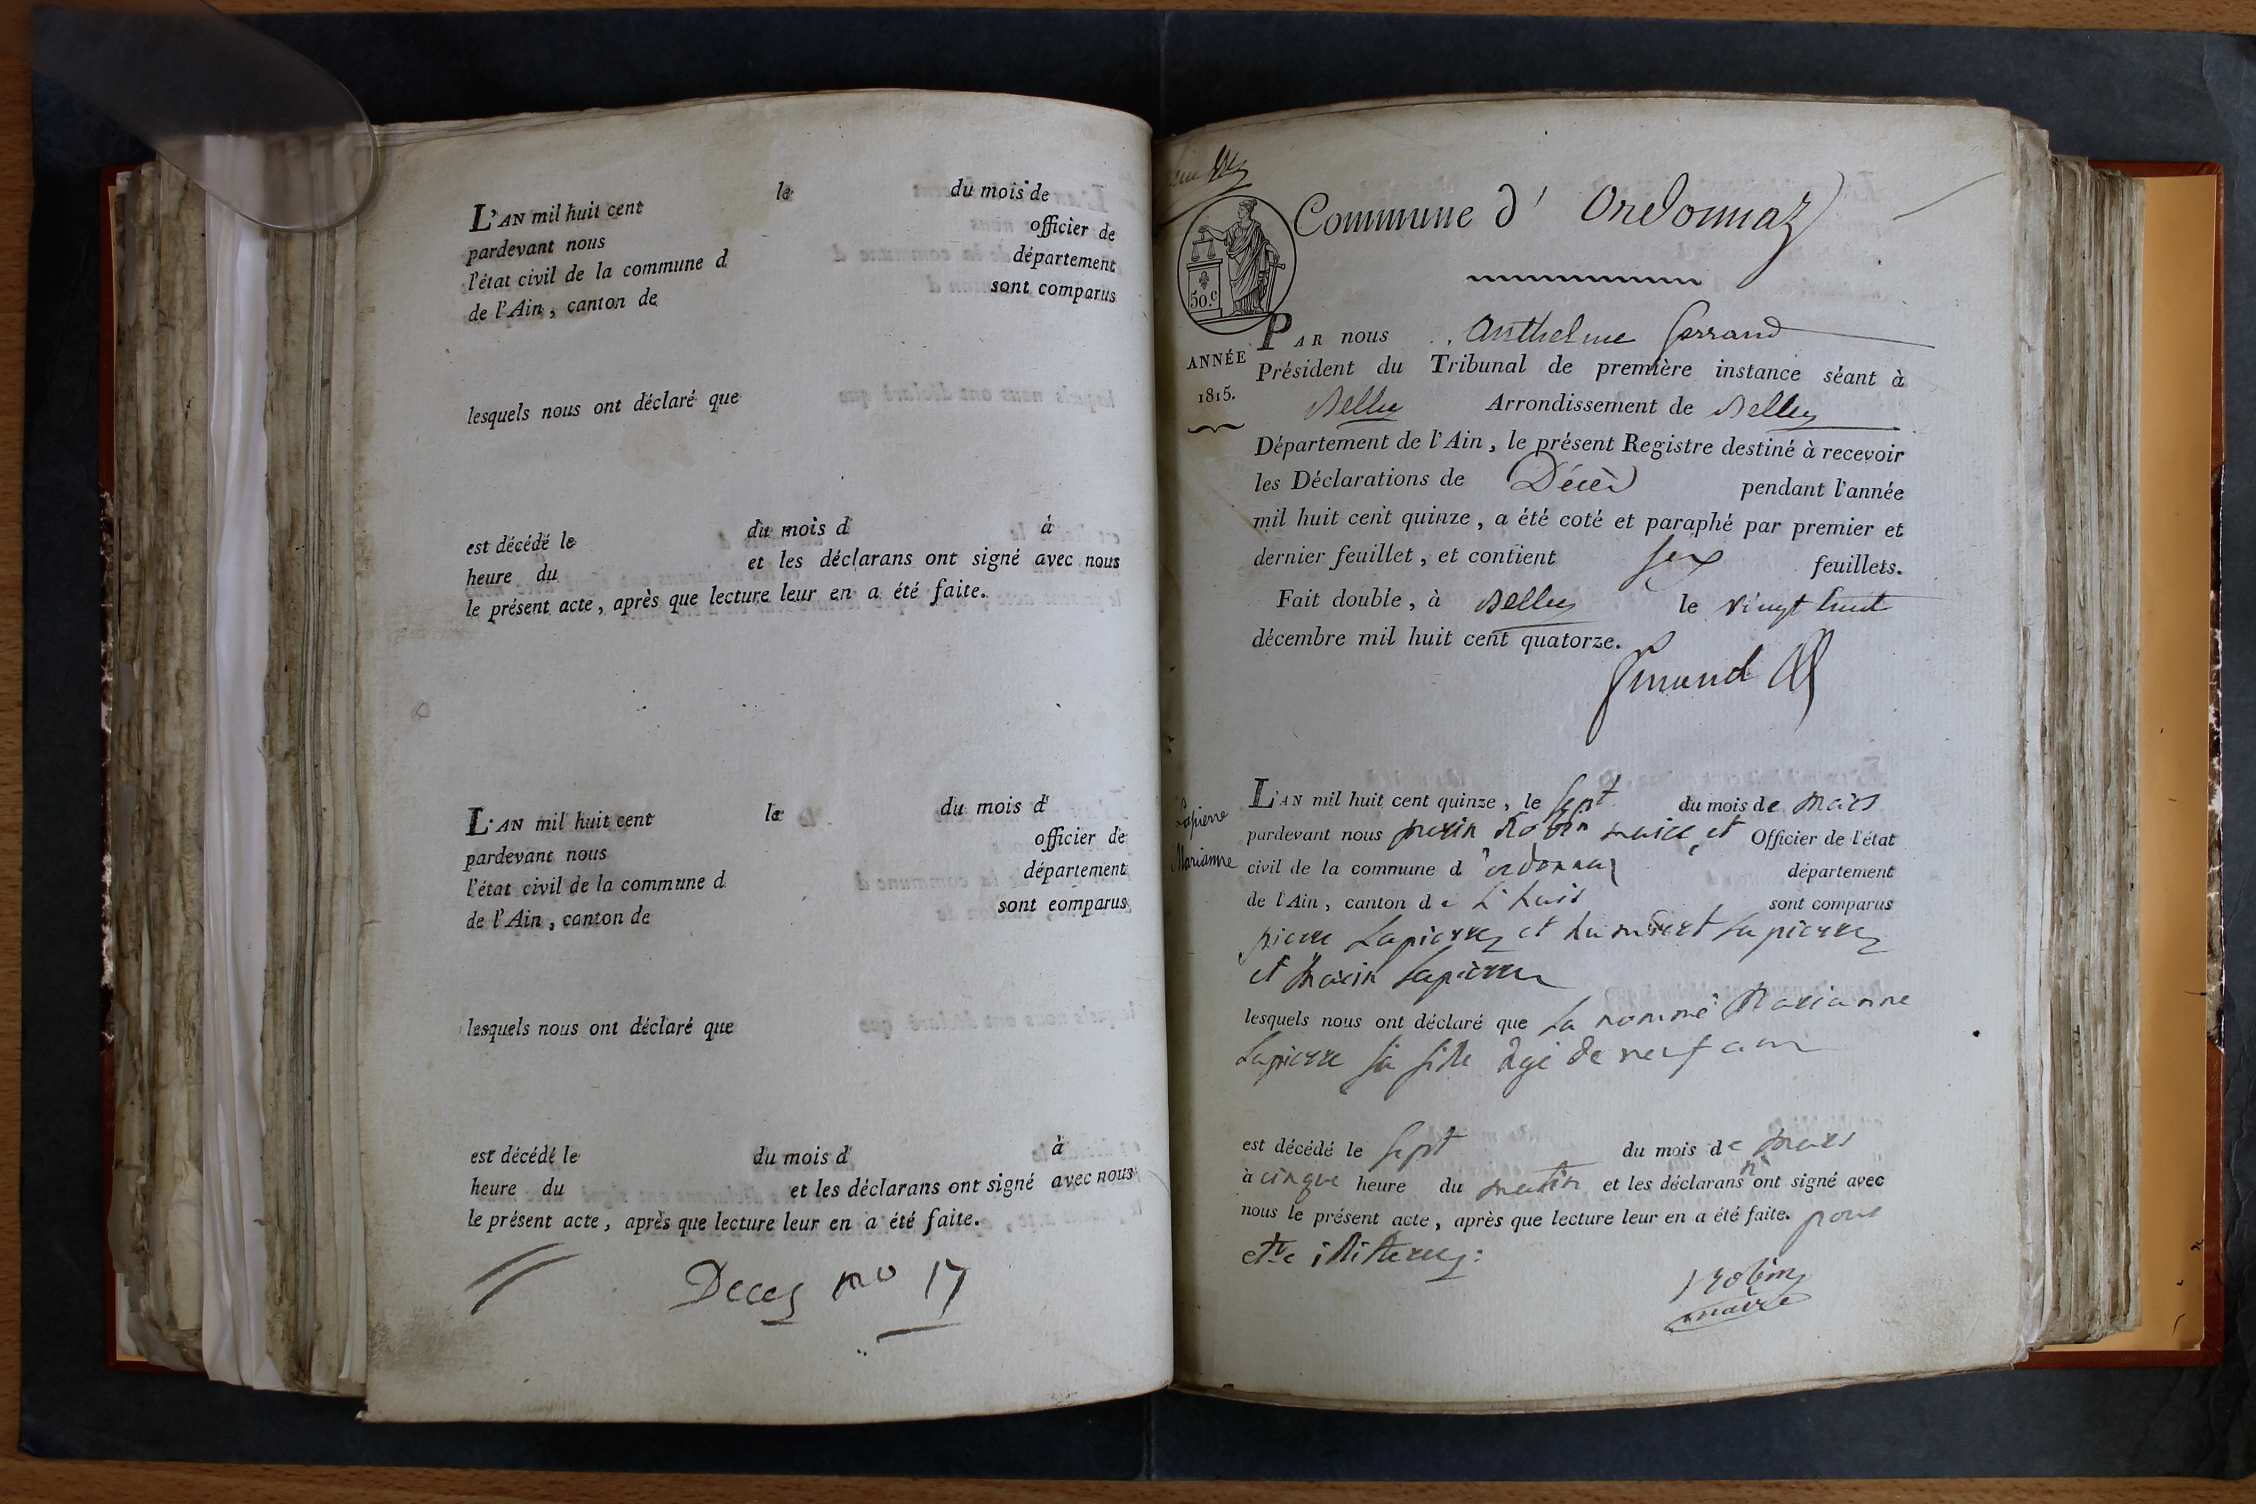 L'AN mil huit cent le du mois de
pardevant nous officier de
l'état civil de la commune d département
de l'Ain, canton de sont comparus
lesquels nous ont déclaré que
est décédé le du mois d à
heure du et les déclarans ont signé avec nous
le présent acte, après que lecture leur en a été faite.
L'AN mil huit cent le du mois d
pardevant nous officier de
l'état civil de la commune d département
de l'Ain, canton de sont comparus
lesquels nous ont déclaré que
est décédé le du mois d à
heure du et les déclarans ont signé avec nous
le présent acte, après que lecture leur en a été faite.
Deces no 17
Commune d' Ordonnaz
50.c
ANNÉE
1815.
PAR nous Anthelme
Président du Tribunal de première instance séant à
Belley Arrondissement de Belley
Département de l'Ain, le présent Registre destiné à recevoir
les Déclarations de Décès pendant l'année
mil huit cent quinze, a été coté et paraphé par premier et
dernier feuillet, et contient six feuillets.
Fait double, à Belley le vingt huit
décembre mil huit cent quatorze.
Lapierre
Marianne
L'AN mil huit cent quinze, le sept du mois de mars
pardevant nous Robin maire et Officier de l'état
civil de la commune d'ordonnaz département
de l'Ain, canton de L'huis sont comparus
pierre Lapierre et humbert Lapierre
et Lapierre
lesquels nous ont déclaré que La nommé Marianne
Lapierre sa fille agé de neuf ans
est décédé le sept du mois de mars
à cinque heure du matin et les déclarans n'ont signé avec
nous le présent acte, après que lecture leur en a été faite. pour
etre iliterez:
Robin
maire